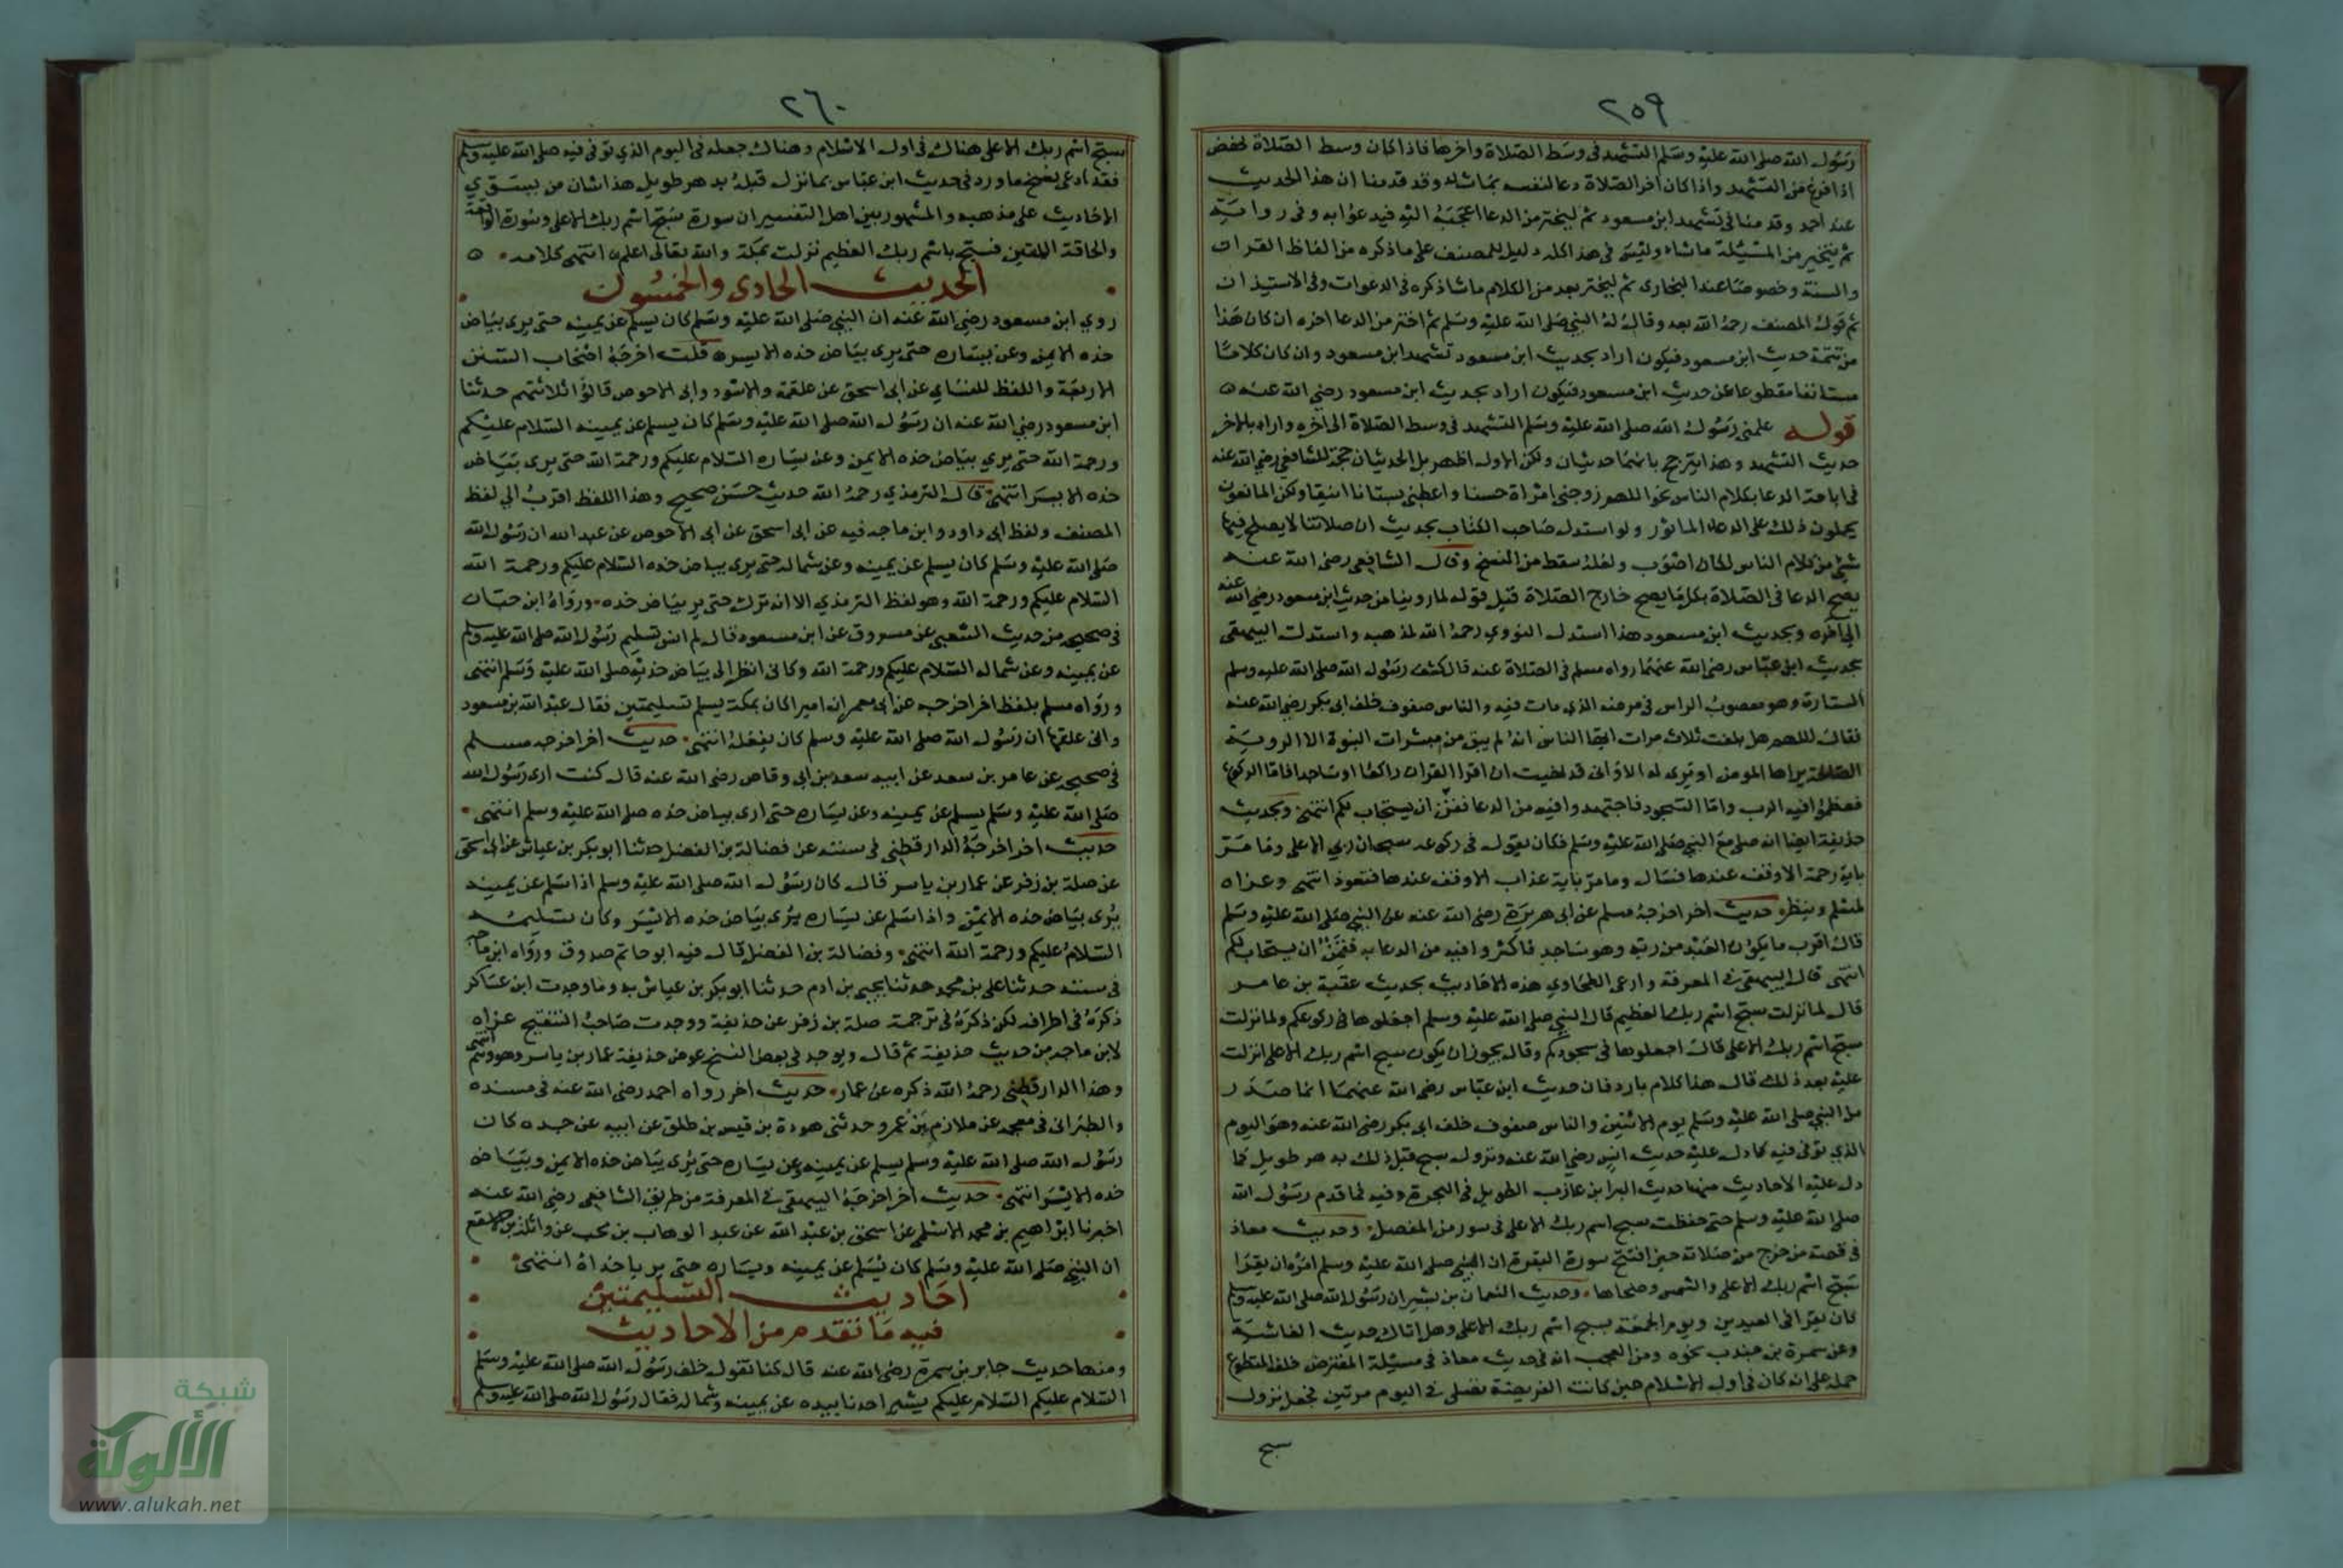 ٢٥٩
رسول الله صلى الله عليه وسلم التشهد فى وسط الصلاة واخرها فاذا كان وسط الصلاة نهض
اذا فرغ من التشهد واذا كان اخر الصلاة دعا لنفسه بما شاء وقد قدمنا ان هذا الحديث
عند احمد وقد منا فى تشهد ابن مسعود ثم ليختر من الدعا اعجبه اليه فيدعوا به وفى رواية
ثم يتخير من المسئلة ما شاء وليس فى هذا كله دليل للمصنف على ما ذكره من الفاظ القران
والسنة وخصوصا عند البخارى ثم ليختر بعد من الكلام ما شا ذكره فى الدعوات وفى الاستيذان
ثم قول المصنف رحمه الله بعد وقال له النبي صلى الله عليه وسلم ثم اختر من الدعا اخره ان كان هذا
من تتمة حديث ابن مسعود فيكون اراد بحديث ابن مسعود تشهد ابن مسعود وان كان كلاما
مستانفا مقطوعا عن حديث ابن مسعود فيكون اراد بحديث ابن مسعود رضي الله عنه ه
قوله علمنى رسول الله صلى الله عليه وسلم التشهد فى وسط الصلاة الى اخره واراد بالاخر
حديث التشهد وهذا يترجح بانهما حديثان ولكن الاول اظهر بل الحديثان حجة للشافعي رضي الله عنه
فى اباحة الدعا بكلام الناس نحو اللهم زوجنى امراة حسنا واعطنى بستانا انيقا ولكن المانعون
يحملون ذلك على الدعاء الماثور ولو استدل صاحب الكتاب بحديث ان صلاتنا لا يصلح فيها
شئ من كلام الناس لكان اصوب ولعله سقط من النسخ وقال الشافعى رضى الله عنه
يصح الدعا فى الصلاة بكل ما يصح خارج الصلاة قبل قوله لما روينا من حديث ابن مسعود رضي الله عنه
الى اخره وبحديث ابن مسعود هذا استدل النووي رحمه الله لمذهبه واستدلت البيهقى
بحديث ابن عباس رضى الله عنهما رواه مسلم فى الصلاة عنه قال كشف رسول الله صلى الله عليه وسلم
الستارة وهو معصوب الراس فى مرضه الذى مات فيه والناس صفوف خلف ابى بكر رضى الله عنه
فقال اللهم هل بلغت ثلاث مرات ايها الناس انه لم يبق من مبشرات النبوة الا الروية
الصالحة يراها المومن او يرى له الا وانى قد نهيت ان اقرا القران راكعا او ساجدا فاما الركوع
فعظموا فيه الرب واما السجود فاجتهدوا فيه من الدعا فقمن ان يستجاب لكم انتهى وبحديث
حذيفة ايضا انه صلى مع النبي صلى الله عليه وسلم فكان يقول فى ركوعه سبحان ربي الاعلى وما مر
باية رحمة الا وقف عندها فسال وما مر باية عذاب الا وقف عندها فتعوذ انتهى وعزاه
لمسلم وينظره حديث اخر اخرجه مسلم عن ابى هريرة رضى الله عنه عن النبي صلى الله عليه وسلم
قال اقرب ما يكون العبد من ربه وهو ساجد فاكثروا فيه من الدعا به فقمن ان يستجاب لكم
انتهى قال البيهقى فى المعرفة وادعى الطحاوي هذه الاحاديث بحديث عقبة بن عامر
قال لما نزلت سبح اسم ربك العظيم قال النبي صلى الله عليه وسلم اجعلوها فى ركوعكم ولما نزلت
سبح اسم ربك الاعلى قال اجعلوها فى سجودكم وقال يجوز ان يكون سبح اسم ربك الاعلى انزلت
عليه بعد ذلك قال هذا كلام بارد فان حديث ابن عباس رضى الله عنهما انما صدر
من النبي صلى الله عليه وسلم يوم الاثنين والناس صفوف خلف ابى بكر رضى الله عنه وهو اليوم
الذي توفى فيه كما دل عليه حديث انس رضي الله عنه ونزول سبح قبل ذلك بدهر طويل كما
دل عليه الاحاديث منها حديث البرا بن عازب الطويل فى الهجرة وفيه فما قدم رسول الله
صلى الله عليه وسلم حتى حفظت سبح اسم ربك الاعلى فى سور من المفصل وحديث معاذ
فى قصة من خرج من صلاته حين افتتح سورة البقرة ان النبي صلى الله عليه وسلم امره ان يقرا
سبح اسم ربك الاعلى والشمس وضحاها وحديث النعمان بن بشير ان رسول الله صلى الله عليه وسلم
كان يقرا فى العيدين ويوم الجمعة بسبح اسم ربك الاعلى وهل اتاك حديث الغاشية
وعن سمرة بن جندب نحوه ومن العجب انه فى حديث معاذ فى مسئلة المفترض خلف المتطوع
حمله على انه كان فى اول الاسلام حين كانت الفريضة تصلى فى اليوم مرتين فجعل نزول
سبح
٢٦٠
سبح اسم ربك الاعلى هناك فى اول الاسلام وهناك جعله فى اليوم الذي توفى فيه صلى الله عليه وسلم
فقد ادعى نسخ ما ورد فى حديث ابن عباس بما نزل قبله بدهر طويل هذا شان من يسوي
الاحاديث على مذهبه والمشهور بين اهل التفسير ان سورة سبح اسم ربك الاعلى وسورة الواقعة
والحاقة اللتين فسبح باسم ربك العظيم نزلت بمكة والله تعالى اعلم انتهى كلامه ه
الحديث الحادى والخمسون
روي ابن مسعود رضي الله عنه ان النبي صلى الله عليه وسلم كان يسلم عن يمينه حتى يرى بياض
خده الايمن وعن يساره حتى يرى بياض خده الايسر ه قلت اخرجه اصحاب السنن
الاربعة واللفظ للنساي عن ابى اسحق عن علقمة والاسود وابى الاحوص قالوا ثلاثتهم حدثنا
ابن مسعود رضي الله عنه ان رسول الله صلى الله عليه وسلم كان يسلم عن يمينه السلام عليكم
ورحمة الله حتى يري بياض خده الايمن وعن يساره السلام عليكم ورحمة الله حتى يرى بياض
خده الايسر انتهى قال الترمذي رحمه الله حديث حسن صحيح وهذا اللفظ اقرب الي لفظ
المصنف ولفظ ابى داود وابن ماجه فيه عن ابى اسحق عن ابى الاحوص عن عبد الله ان رسول الله
صلى الله عليه وسلم كان يسلم عن يمينه وعن شماله حتى يرى بياض خده السلام عليكم ورحمة الله
السلام عليكم ورحمة الله وهو لفظ الترمذي الا انه ترك حتى يرى بياض خده ورواه ابن حبان
فى صحيحه من حديث الشعبى عن مسروق عن ابن مسعود قال لم انس تسليم رسول الله صلى الله عليه وسلم
عن يمينه وعن شماله السلام عليكم ورحمة الله وكانى انظر الى بياض خديه صلى الله عليه وسلم انتهى
ورواه مسلم بلفظ اخر اخرجه عن ابى معمر ان اميرا كان بمكة يسلم تسليمتين فقال عبد الله بن مسعود
وانى علقها ان رسول الله صلى الله عليه وسلم كان يفعله انتهى حديث اخر اخرجه مسلم
فى صحيحه عن عامر بن سعد عن ابيه سعد بن ابى وقاص رضى الله عنه قال كنت ارى رسول الله
صلى الله عليه وسلم يسلم عن يمينه وعن يساره حتى ارى بياض خده صلى الله عليه وسلم انتهى
حديث اخر اخرجه الدارقطنى فى سننه عن فضالة بن الفضل حدثنا ابو بكر بن عياش عن ابى اسحق
عن صلة بن زفر عن عمار بن ياسر قال كان رسول الله صلى الله عليه وسلم اذا سلم عن يمينه
يرى بياض خده الايمن واذا سلم عن يساره يرى بياض خده الايسر وكان تسليمه
السلام عليكم ورحمة الله انتهى وفضالة بن الفضل قال فيه ابو حاتم صدوق ورواه ابن ماجه
فى سننه حدثنا على بن محمد حدثنا يحيى بن ادم حدثنا ابو بكر بن عياش به وما وجدت ابن عساكر
ذكره فى اطرافه لكن ذكره فى ترجمة صلة بن زفر عن حذيفة ووجدت صاحب التنقيح عزاه
لابن ماجه من حديث حذيفة ثم قال ويوجد فى بعض النسخ عوض حذيفة عمار بن ياسر وهو وهم انتهى
وهذا الدارقطنى رحمه الله ذكره عن عمار حديث اخر رواه احمد رضى الله عنه فى مسنده
والطبرانى فى معجمه عن ملازم بن عمرو حدثنى هودة بن قيس بن طلق عن ابيه عن جده كان
رسول الله صلى الله عليه وسلم يسلم عن يمينه وعن يساره حتى يرى بياض خده الايمن وبياض
خده الايسر انتهى حديث اخر اخرجه البيهقى فى المعرفة من طريق الشافعى رضى الله عنه
اخبرنا ابراهيم بن محمد الاسلمى عن اسحق بن عبد الله عن عبد الوهاب بن بحب عن واثلة بن الاسقع
ان النبي صلى الله عليه وسلم كان يسلم عن يمينه ويساره حتى يرى ياخداه انتهى
احاديث التسليمتين
فيه ما تقدم من الاحاديث
ومنها حديث جابر بن سمرة رضى الله عنه قال كنا نقول خلف رسول الله صلى الله عليه وسلم
السلام عليكم السلام عليكم يشير احدنا بيده عن يمينه وشماله فقال رسول الله صلى الله عليه وسلم
شبكة
الألوكة
www.alukah.net